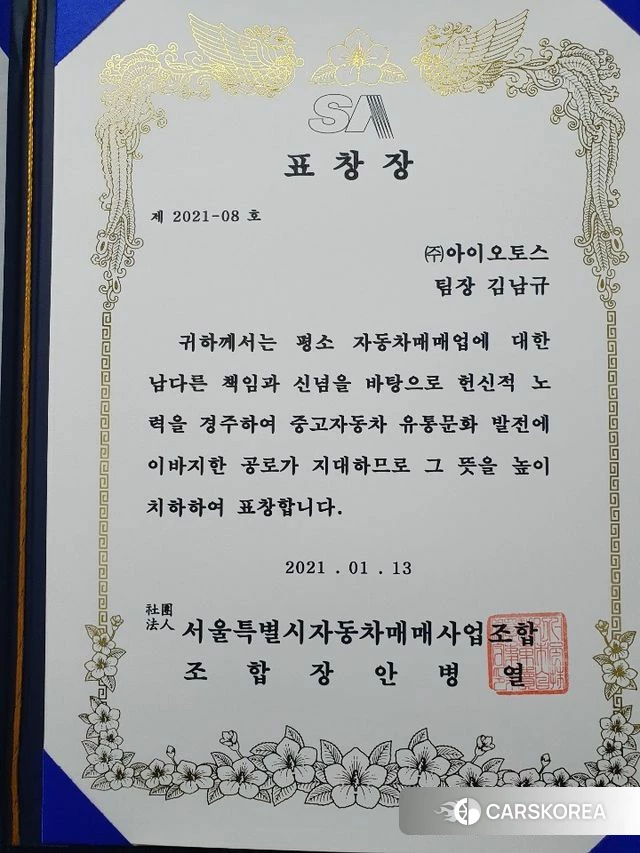 SA
표창장
제 2021-08 호
㈜아이오토스
팀장 김남규
귀하께서는 평소 자동차매매업에 대한
남다른 책임과 신념을 바탕으로 헌신적 노
력을 경주하여 중고자동차 유통문화 발전에
이바지한 공로가 지대하므로 그 뜻을 높이
치하하여 표창합니다.
2021 . 01 . 13
社團
法人 서울특별시자동차매매사업조합
조 합 장 안 병 열
CARSKOREA